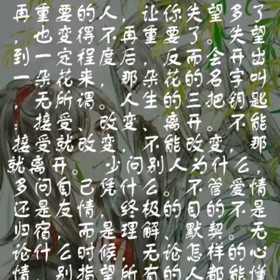 再重要的人，让你失望多了
，也变得不再重要了。失望
到一定程度后，反而会开出
一朵花来，那朵花的名字叫
，无所谓。人生的三把钥匙
：接受、改变、离开。不能
接受就改变，不能改变，那
就离开。 少问别人为什么，
多问自己凭什么。不管爱情
还是友情，终极的目的不是
归宿，而是理解、默契。无
论什么时候，无论怎样的心
情，别指望所有的人都能懂